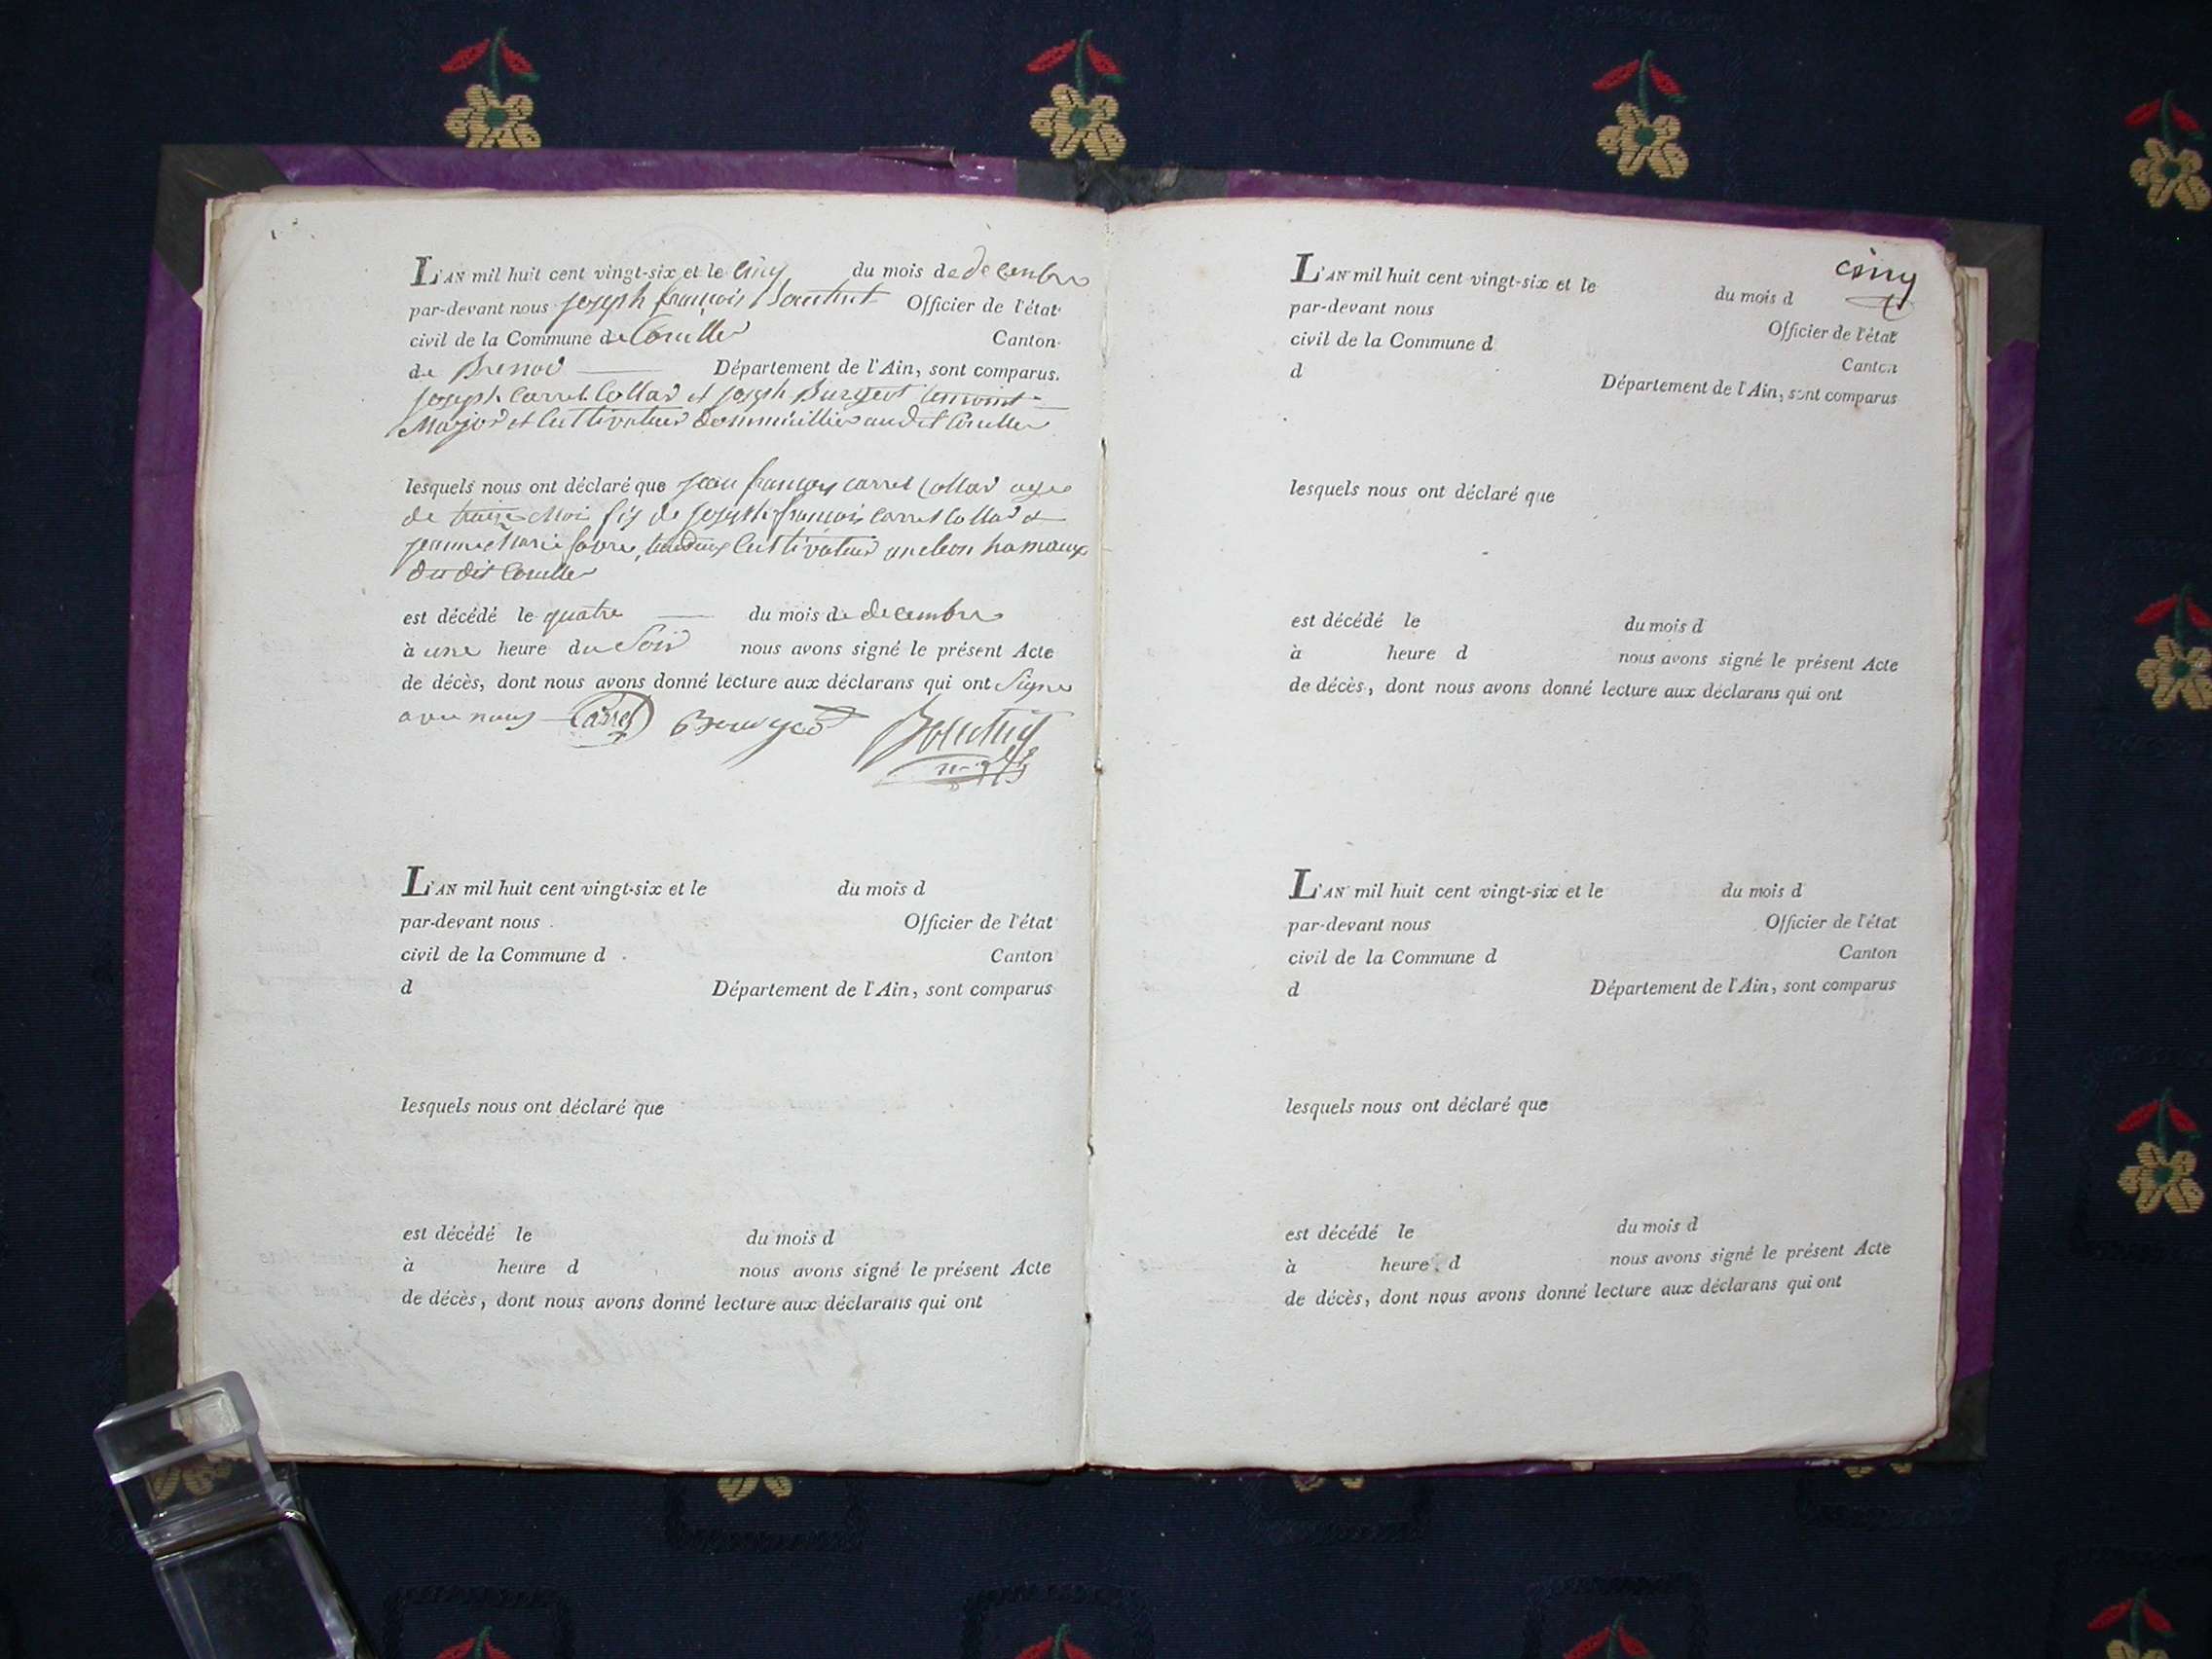 L'AN mil huit cent vingt-six et le cinq du mois de decembre
par-devant nous joseph françois Officier de l'état
civil de la Commune de Corcelle Canton
de Brenod Département de l'Ain, sont comparus.
joseph Carrel Collad et joseph Burgod
Major et Cultivateur audit Corcelle
lesquels nous ont déclaré que jean françoy carrel Collad age
de treize Moi fis de joseph françois Carrel Collad et
jeanne Marie favre, Cultivateur hamaux
du dit Corcelle
est décédé le quatre du mois de decembre
à une heure du Soir nous avons signé le présent Acte
de décès, dont nous avons donné lecture aux déclarans qui ont Signe
avec nous Carrel
L'AN mil huit cent vingt-six et le du mois d
par-devant nous Officier de l'état
civil de la Commune d Canton
d Département de l'Ain, sont comparus
lesquels nous ont déclaré que
est décédé le du mois d
à heure d nous avons signé le présent Acte
de décès, dont nous avons donné lecture aux déclarans qui ont
cinq
L'AN mil huit cent vingt-six et le du mois d
par-devant nous Officier de l'état
civil de la Commune d Canton
d Département de l'Ain, sont comparus
lesquels nous ont déclaré que
est décédé le du mois d
à heure d nous avons signé le présent Acte
de décès, dont nous avons donné lecture aux déclarans qui ont
L'AN mil huit cent vingt-six et le du mois d
par-devant nous Officier de l'état
civil de la Commune d Canton
d Département de l'Ain, sont comparus
lesquels nous ont déclaré que
est décédé le du mois d
à heure d nous avons signé le présent Acte
de décès, dont nous avons donné lecture aux déclarans qui ont